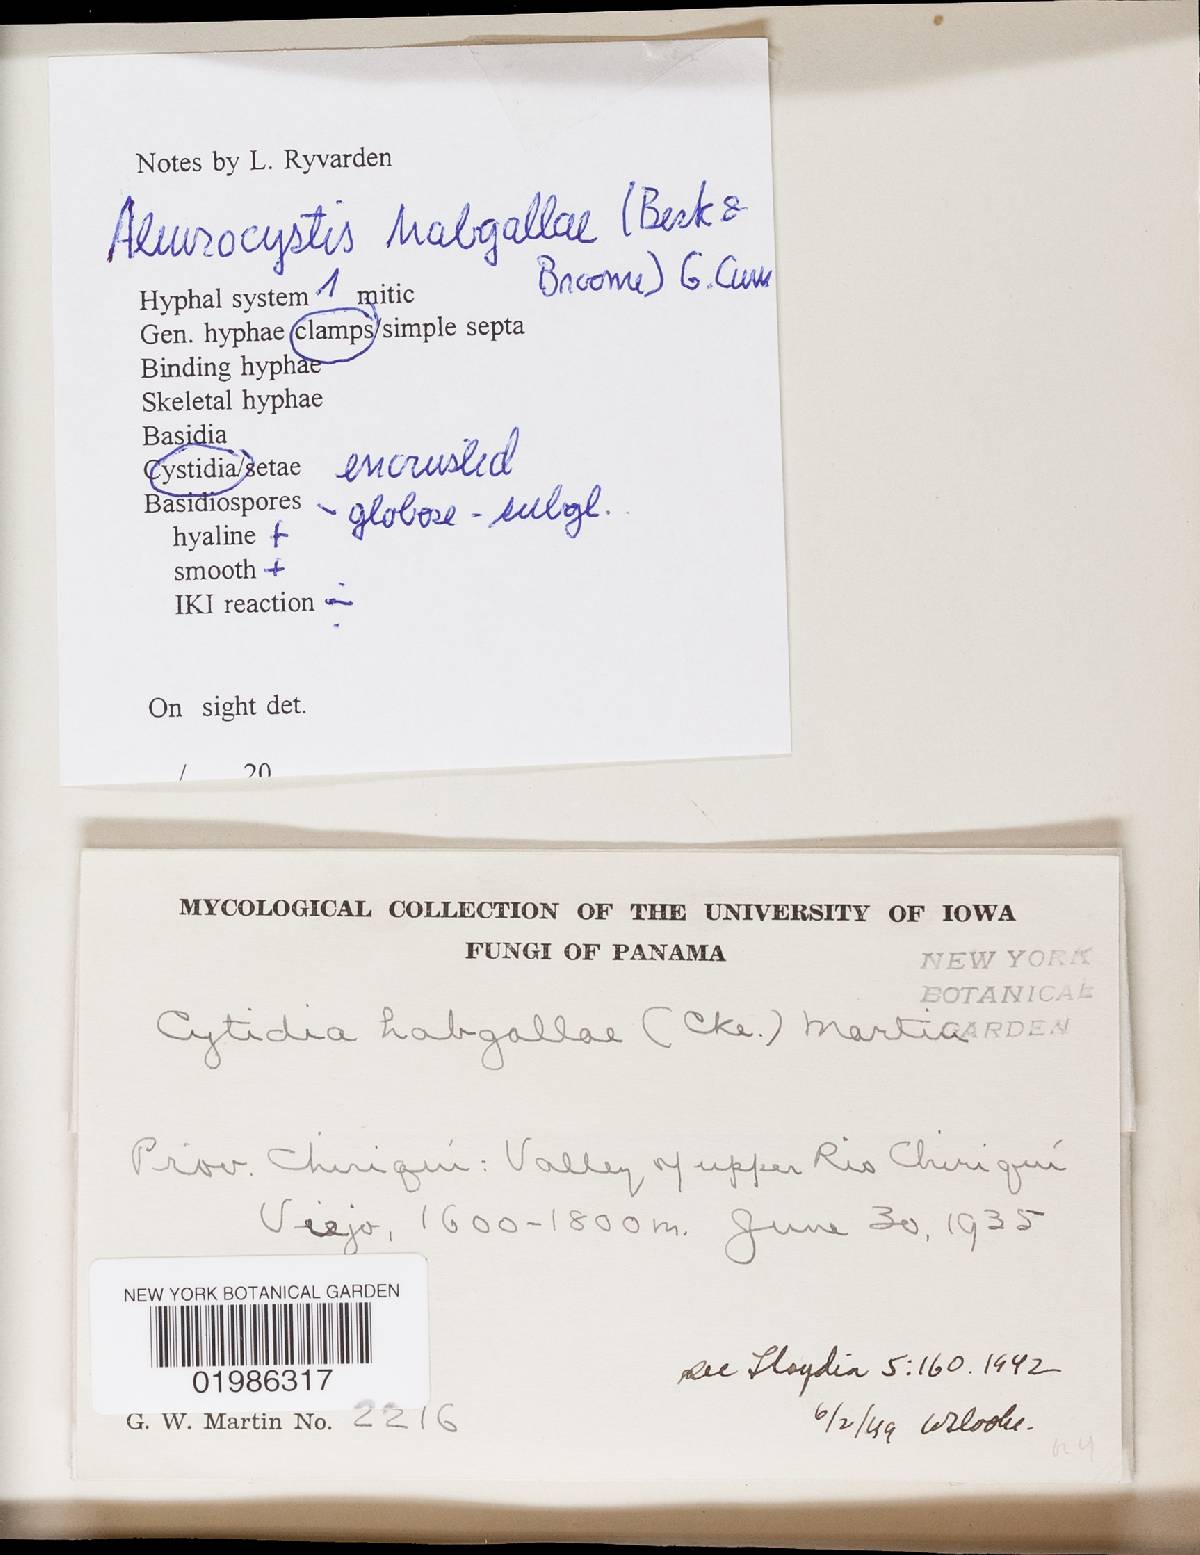 Notes by L. Ryvarden
Aleurocystis habgallae (Berk &
Broome) G. Cunn
Hyphal system 1 mitic
Gen. hyphae clamps/simple septa
Binding hyphae
Skeletal hyphae
Basidia
Cystidia/setae encrusted
Basidiospores - globose - subgl.
hyaline +
smooth +
IKI reaction ÷
On sight det.
/ 20
MYCOLOGICAL COLLECTION OF THE UNIVERSITY OF IOWA
FUNGI OF PANAMA
NEW YORK
BOTANICAL
GARDEN
Cytidia habgallae (Cke.) Martin
Prov. Chiriquí: Valley of upper Rio Chiriquí
Viejo, 1600-1800m. June 30, 1935
NEW YORK BOTANICAL GARDEN
01986317
see Lloydia 5:160. 1942
G. W. Martin No. 2216
6/2/49 WBCooke.